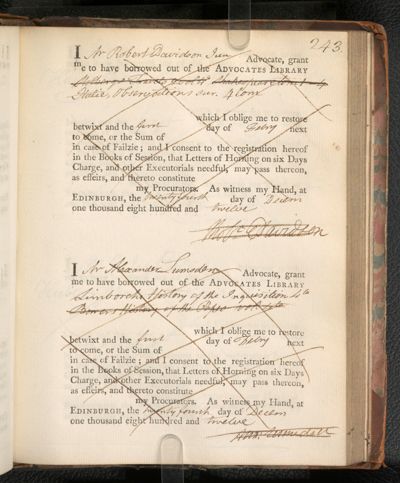 243
I Mr Robert Davidson Jun Advocate, grant
me to have borrowed out of the ADVOCATES LIBRARY
Shakespeare
Italia, Observations sur. 4 tom
which I oblige me to restore
betwixt and the first day of Feby next
to come, or the Sum of
in case of Failzie; and I consent to the registration hereof
in the Books of Session, that Letters of Horning on six Days
Charge, and other Executorials needful, may pass thereon,
as effeirs, and thereto constitute
my Procurators. As witness my Hand, at
EDINBURGH, the twenty fourth day of Decem
one thousand eight hundred and twelve
Davidson
I Mr Alexander Lumsden Advocate, grant
me to have borrowed out of the ADVOCATES LIBRARY
Limborch's History of the Inquisition 4to
Bower's History of the Popes vol. 4to
which I oblige me to restore
betwixt and the first day of Feby next
to come, or the Sum of
in case of Failzie; and I consent to the registration hereof
in the Books of Session, that Letters of Horning on six Days
Charge, and other Executorials needful, may pass thereon,
as effeirs, and thereto constitute
my Procurators. As witness my Hand, at
EDINBURGH, the twenty fourth day of Decem
one thousand eight hundred and twelve